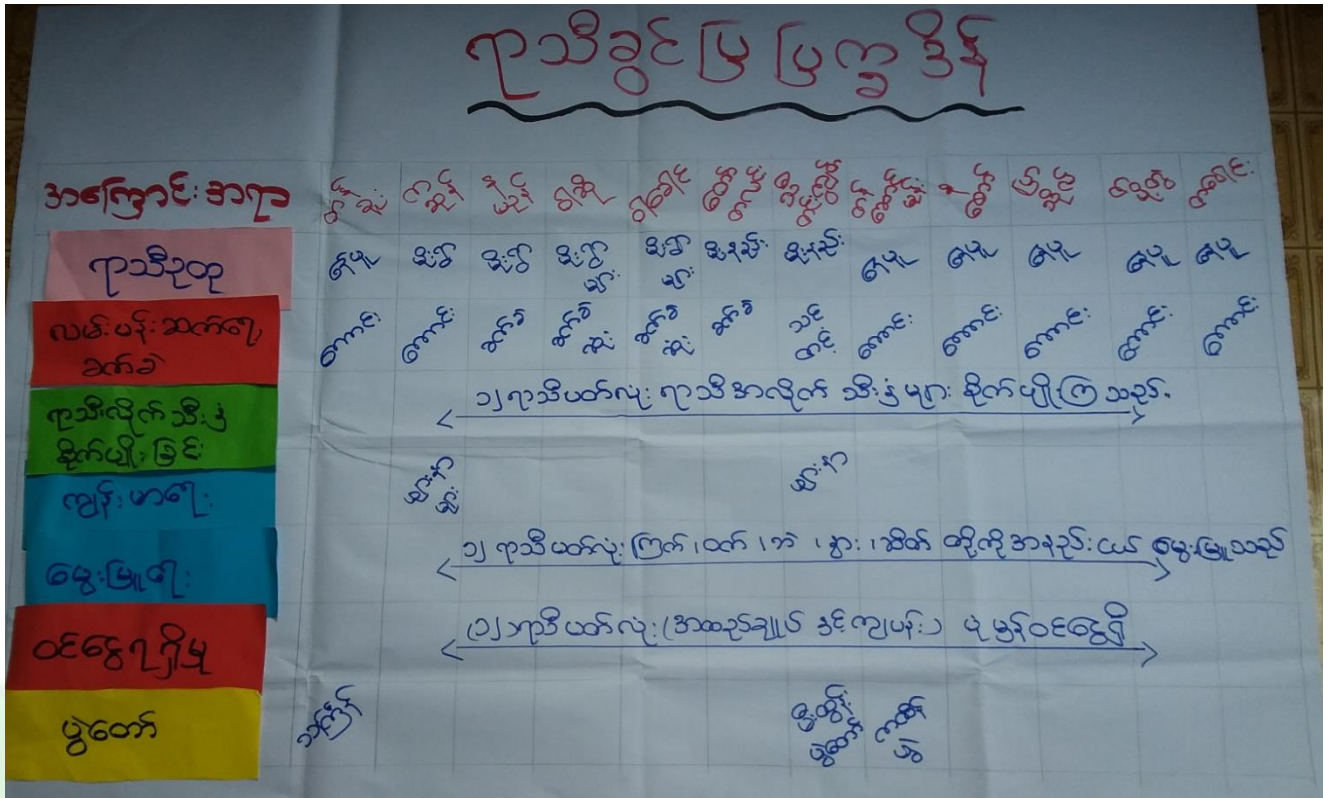 ရာသီခွင်ပြ ပြက္ခဒိန်
အကြောင်းအရာ တန်ခူး ကဆုန် နယုန် ဝါဆို ဝါခေါင် တော်သလင်း သီတင်းကျွတ် တန်ဆောင်မုန်း နတ်တော် ပြာသို တပို့တွဲ တပေါင်း
ရာသီဥတု နေပူ မိုးရွာ မိုးရွာ မိုးရွာ များ မိုးရွာ များ မိုးနည်း မိုးနည်း နေပူ နေပူ နေပူ နေပူ နေပူ
လမ်းပန်းဆက်ရေး ခက်ခဲ ကောင်း ကောင်း ခက်ခဲ ခက်ခဲ ဆုံး ခက်ခဲ ဆုံး ခက်ခဲ သင့် တင့် ကောင်း ကောင်း ကောင်း ကောင်း ကောင်း
ရာသီလိုက် သီးနှံ စိုက်ပျိုးခြင်း ၁၂ ရာသီပတ်လုံး ရာသီအလိုက် သီးနှံများ စိုက်ပျိုးကြသည်.
ကျန်းမာရေး ဖျားနာ ဆုံး ဖျားနာ
မွေးမြူရေး ၁၂ ရာသီပတ်လုံး ကြက်၊ ဝက်၊ ဘဲ၊ နွား၊ ဆိတ် တို့ကို အနည်းငယ် မွေးမြူသည်
ဝင်ငွေရရှိမှု (၁၂) ရာသီပတ်လုံး (အထည်ချုပ် နှင့် ကျပန်း) ပုံမှန်ဝင်ငွေရှိ
ပွဲတော် သင်္ကြန် မီးထွန်း ပွဲတော် ကထိန် ပွဲ